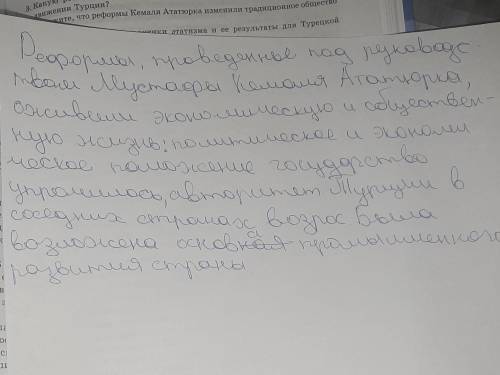 3. Какую р
движении Турции?
жите, что реформы Кемаля Ататюрка изменили традиционное общество
этатизма и ее результаты для Турецкой
Реформы, проведенные под руководс-
твом Мустафы Кемаля Ататюрка,
оживили экономическую и обществен-
ную жизнь: политическое и экономи
ческое положение государство
упрочилось, авторитет Турции в
соседних странах возрос Была
возложена основная промышленного
развития страны